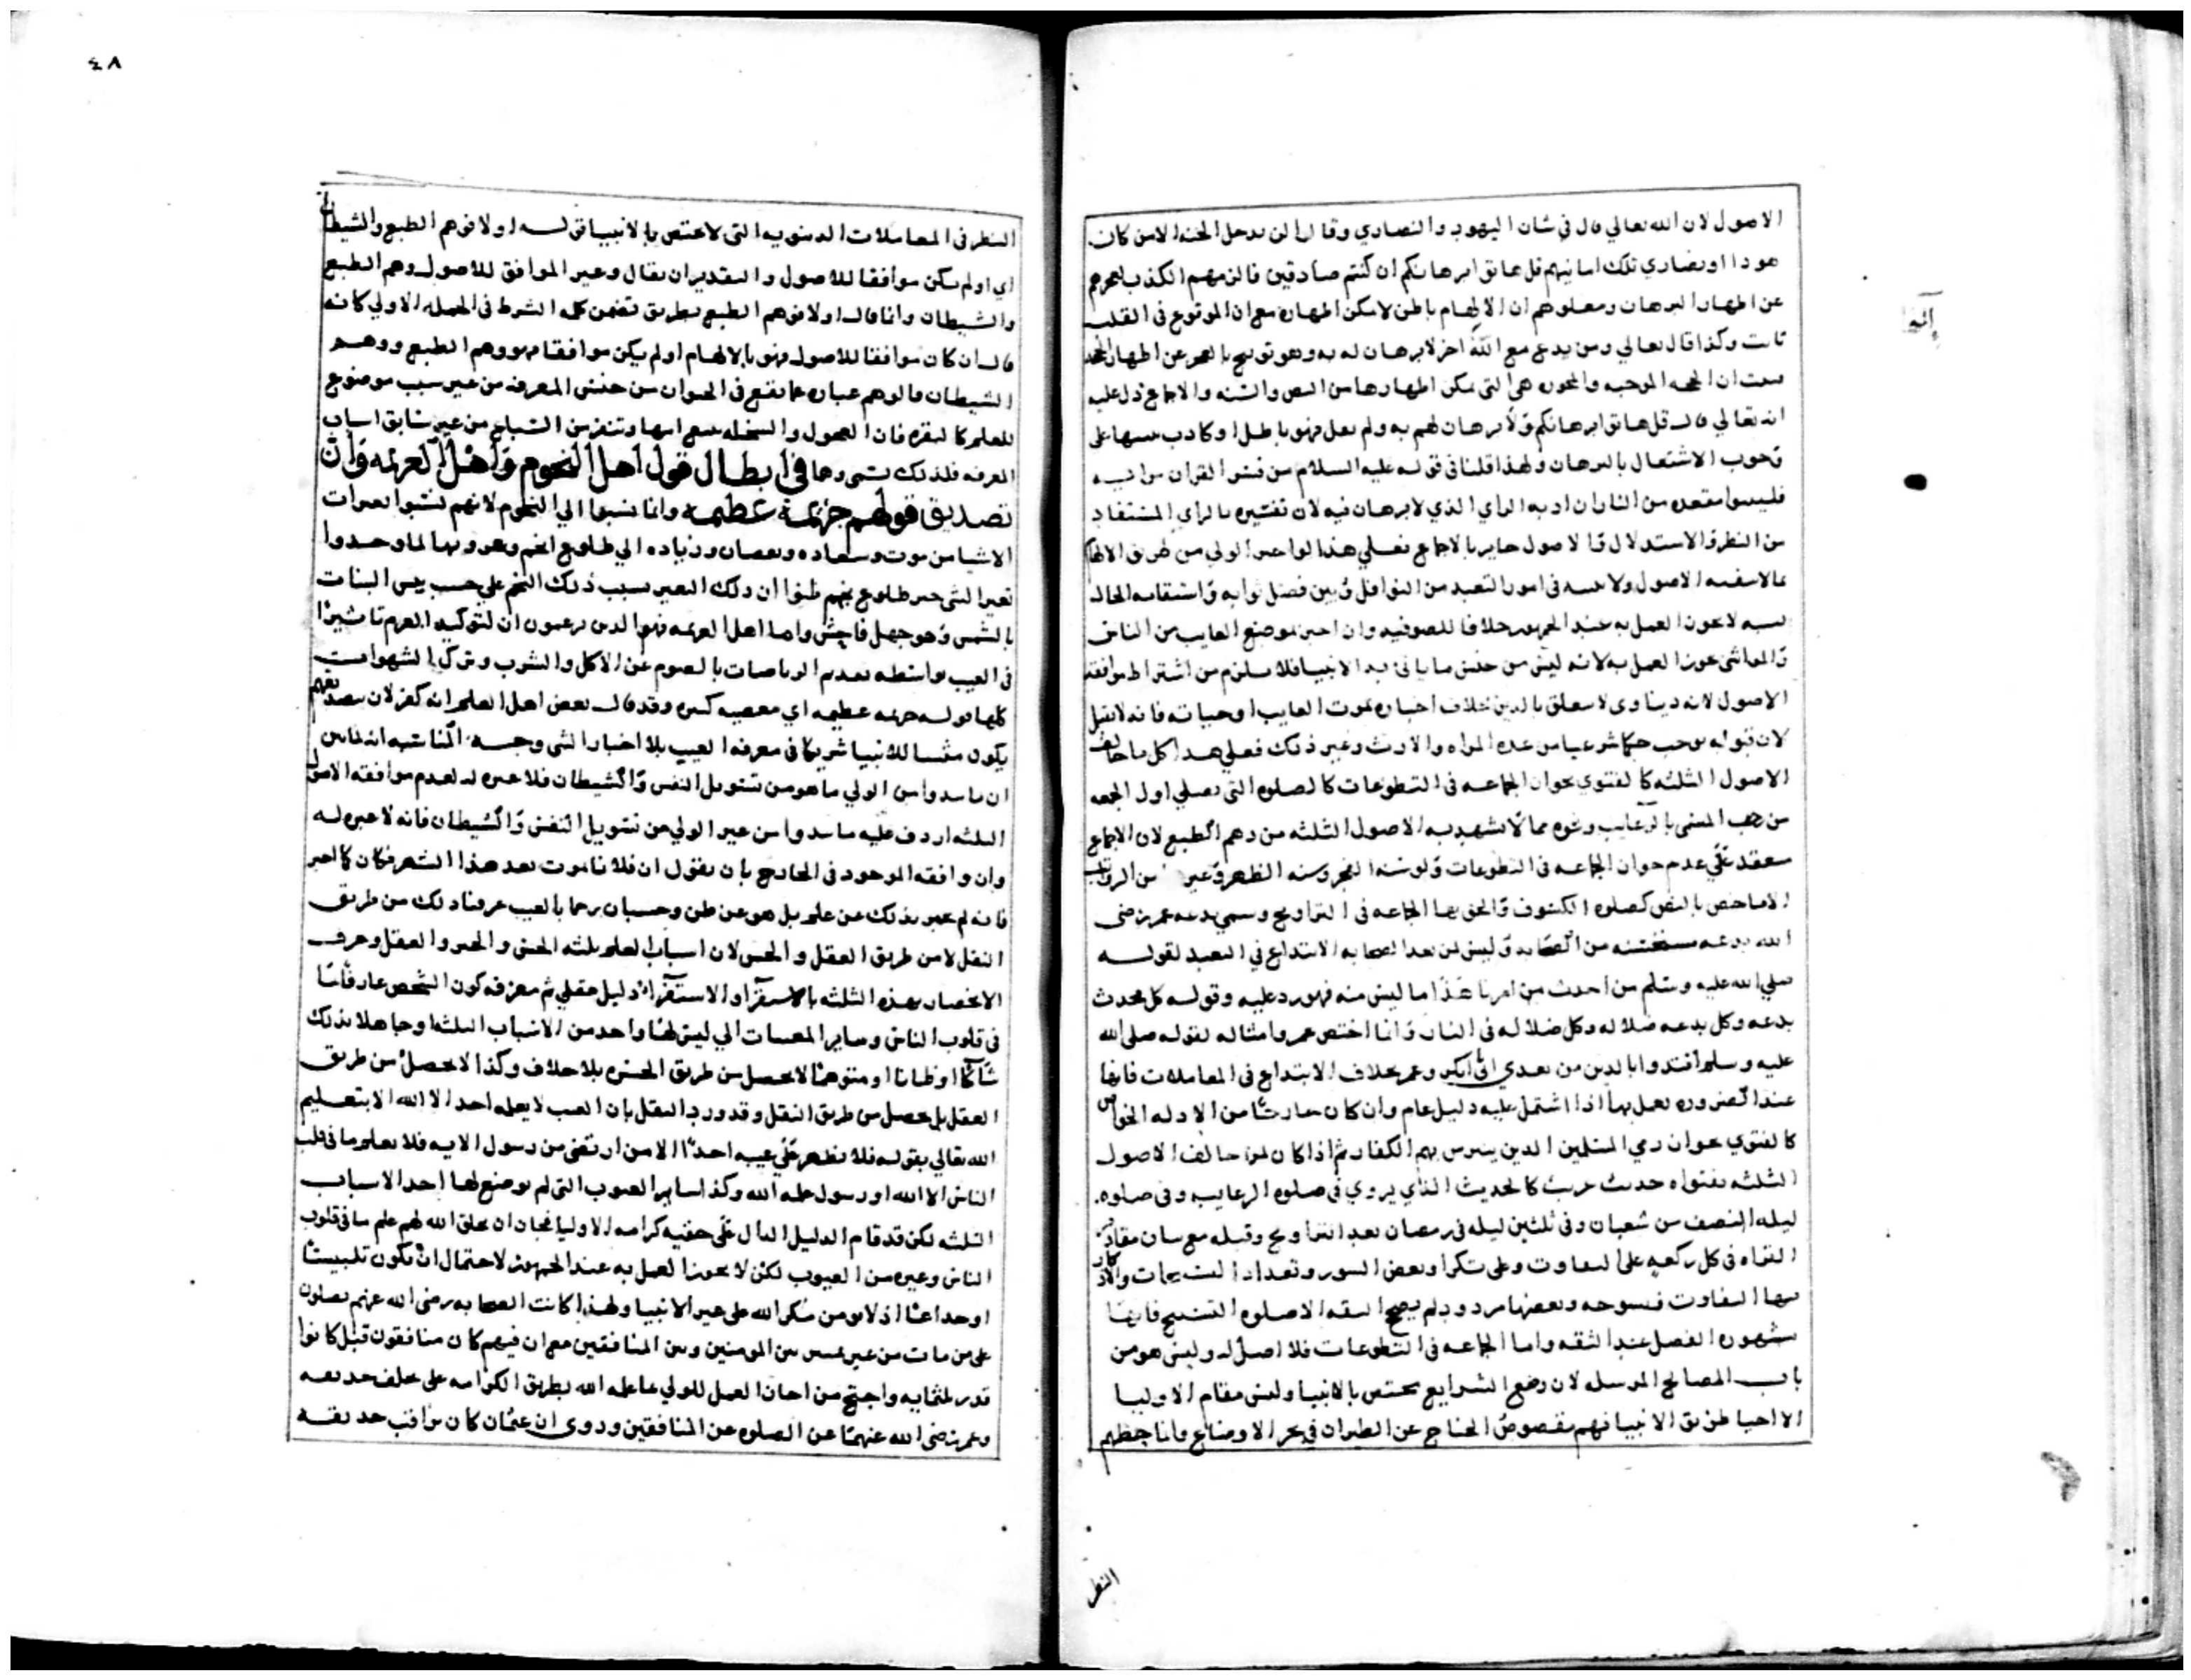 الاصول لان الله تعالي قال في شان اليهود والنصاري وقالوا لن يدخل الجنة الا من كان
هودا او نصاري تلك امانيهم قل هاتوا برهانكم ان كنتم صادقين فالزمهم الكذب لعجزهم
عن اظهار البرهان ومعلوم ان الالهام باطن لا يمكن اظهاره مع ان الوقوع في القلب
ثابت وكذا قال تعالي ومن يدع مع الله اخر لا برهان له به وهو توبيخ بالعجز عن اظهار الحجة
ان الحجة الموجبة هي التي يمكن اظهارها من النص والسنة والاجماع دل عليه
انه تعالي قال قل هاتوا برهانكم ولا برهان لهم به ولم يقل فهو باطل او كاذب تنبيها علي
وجوب الاشتغال بالبرهان ولهذا قلنا في قوله عليه السلام من فسر القران برايه
فليتبوا مقعده من النار ان اراد به الراي الذي لا برهان فيه لان تفسيره بالراي المستفاد
من النظر والاستدلال والاصول جايز بالاجماع فعلي هذا لو اخبر الولي من طريق الالهام
بما لا ينفيه الاصول ولا يثبته في امور التعبد من النوافل وبين فضل ثوابه واستقامة الحال
بسببه لا يجوز العمل به عند الجمهور خلافا للصوفيه وان اخبر بموضع الغايب من الناس
والمواشي يجوز العمل به لانه ليس من جنس ما ياتي به الانبيا فلا يلزم من اشتراط موافقة
الاصول لانه دنياوي لا يتعلق بالدين بخلاف اخباره بموت الغايب او حياته فانه لا يقبل
لان قبوله يوجب حكما شرعيا من عدة المراة والارث وغير ذلك فعلي هذا كل ما خالف
الاصول الثلثه كالفتوي بجواز الجماعة في التطوعات كالصلوة التي تصلي اول الجمعه
من رجب المسمي بالرغايب ونحوه مما لا تشهد به الاصول الثلثه من وهم الطبع لان الاجماع
منعقد علي عدم جواز الجماعه في التطوعات ولو سنة الفجر وسنة الظهر وغير من الرواتب
الا ما خص بالنص كصلوة الكسوف والحق بها الجماعه في التراويح وسمي بدعه عمر رضي
الله بدعه مستحسنه من الصحابه وليس لمن بعد الصحابه الابتداع في التعبد لقوله
صلي الله عليه وسلم من احدث من امرنا هذا ما ليس منه فهو رد عليه وقوله كل محدث
بدعه وكل بدعه ضلاله وكل ضلاله في النار وانما اختص عمر وامثاله لقوله صلي الله
عليه وسلم اقتدوا بالذين من بعدي ابي بكر وعمر بخلاف الابتداع في المعاملات فانها
عند الضرورة يعمل بها اذا اشتمل عليه دليل عام وان كان حادثا من الادله الخواص
كالفتوي بجواز رمي المسلمين الذين يتترس بهم الكفار ثم اذا كان لمن خالف الاصول
الثلثه بفتواه حديث غريب كالحديث الذي يروي في صلوة الرغايب وفي صلوه
ليلة النصف من شعبان وفي ثلثين ليله في رمضان بعد التراويح وقبله مع بيان مقادير
القراة في كل ركعة علي التفاوت وعلي تكرار بعض السور وتعداد التسبيحات والاذكار
فيها التفاوت منسوخه وبعضها مردود لم يصح الا صلوة التسبيح فانها
مشهورة الفضل عند الثقه واما الجماعه في التطوعات فلا اصل له وليس هو من
باب المصالح المرسله لان وضع الشرايع يختص بالانبيا وليس مقام الاوليا
الا احيا طريق الانبيا فهم مقصوص الجناح عن الطيران في بحر الاوضاع وانما حظهم
النظر
٤٨
النظر في المعاملات الدنيويه التي لا تختص بالانبيا قوله اولا فوهم الطبع والشيطان
اي او لم يكن موافقا للاصول والتقدير ان يقال وغير الموافق للاصول وهم الطبع
والشيطان وانما قال اولا فوهم الطبع بطريق تضمن كلمه الشرط في الجمله الاولي كانه
قال ان كان موافقا للاصول فهو بالالهام او لم يكن موافقا فهو وهم الطبع ووهم
الشيطان فالوهم عبارة عما يقع في الحيوان من جنس المعرفة من غير سبب موضوع
للعلم كالبقره فان العجول والسخله تتبع امها وتنفر من السباع من غير سابق اسباب
المعرفه فلذلك تسمي وهما في ابطال قول اهل النجوم واهل العزيمه وان
تصديق قولهم جريمة عظيمه وانما نسبوا الي النجوم لانهم نسبوا تغيرات
الاشيا من موت وسعاده ونقصان وزياده الي طلوع انجم وغروبها لما وجدوا
تغير الشي حين طلوع نجم ظنوا ان ذلك التغير بسبب ذلك النجم علي حسب يبس النبات
بالشمس وهو جهل فاحش واما اهل العزيمه فهو الذين يزعمون ان لتوكيد العزم تاثيرا
في الغيب بواسطه تقديم الرياضات بالصوم عن الاكل والشرب وترك الشهوات
كلها قوله جريمه عظيمه اي معصيه كبيره وقد قال بعض اهل العلم انه كفر لان بتصديقهم
يكون مثبتا للانبيا شريكا في معرفة الغيب بلا اخبار الشي وجه المناسبه انه لما بين
ان ما يبدوا من الولي ما هو من تسويل النفس والشيطان فلا عبره له لعدم موافقة الاصول
الثلثه اردف عليه ما يبدوا من غير الولي من تسويل النفس والشيطان فانه لا عبره له
وان وافقه الموجود في الخارج بان يقول ان فلانا يموت بعد هذا الشهر فكان كما اخبر
فانه لم يخبر بذلك عن علم بل هو عن ظن وحسبان رجما بالغيب عرفنا ذلك من طريق
النقل لا من طريق العقل والحس لان اسباب العلم ثلثه الحس والخبر والعقل وعرف
الانحصار بهذه الثلثه بالاستقرا والاستقراء دليل عقلي ثم معرفه كون الشخص عارفا بما
في قلوب الناس وساير المغيبات التي ليس لها واحد من الاسباب الثلثة او جاهلا بذلك
شاكا او ظانا او متوهما لا يحصل من طريق الحس بلا خلاف وكذا لا يحصل من طريق
العقل بل يحصل من طريق النقل وقد ورد النقل بان الغيب لا يعلمه احد الا الله الا بتعليم
الله تعالي بقوله فلا يظهر علي غيبه احدا الا من ارتضي من رسول الايه فلا يعلم ما في قلب
الناس الا الله او رسول علمه الله وكذا ساير الغيوب التي لم يوضع لها احد الاسباب
الثلثه لكن قد قام الدليل الدال علي حقيه كرامة الاوليا فجاز ان يخلق الله لهم علم ما في قلوب
الناس وغيره من الغيوب لكن لا يجوز العمل به عند الجمهور لاحتمال ان يكون تلبيسا
او خداعا اذ لا يومن مكر الله علي غير الانبيا ولهذا كانت الصحابه رضي الله عنهم يصلون
علي من مات من غير تمييز بين المومنين وبين المنافقين مع ان فيهم كان منافقون قبل كانوا
قدر ثلثمايه واحتج من اجاز العمل للولي بما علمه الله بطريق الكرامه علي تخلف حذيفه
وعمر رضي الله عنهما عن الصلوة عن المنافقين وروي ان عثمان كان يراقب حذيفه